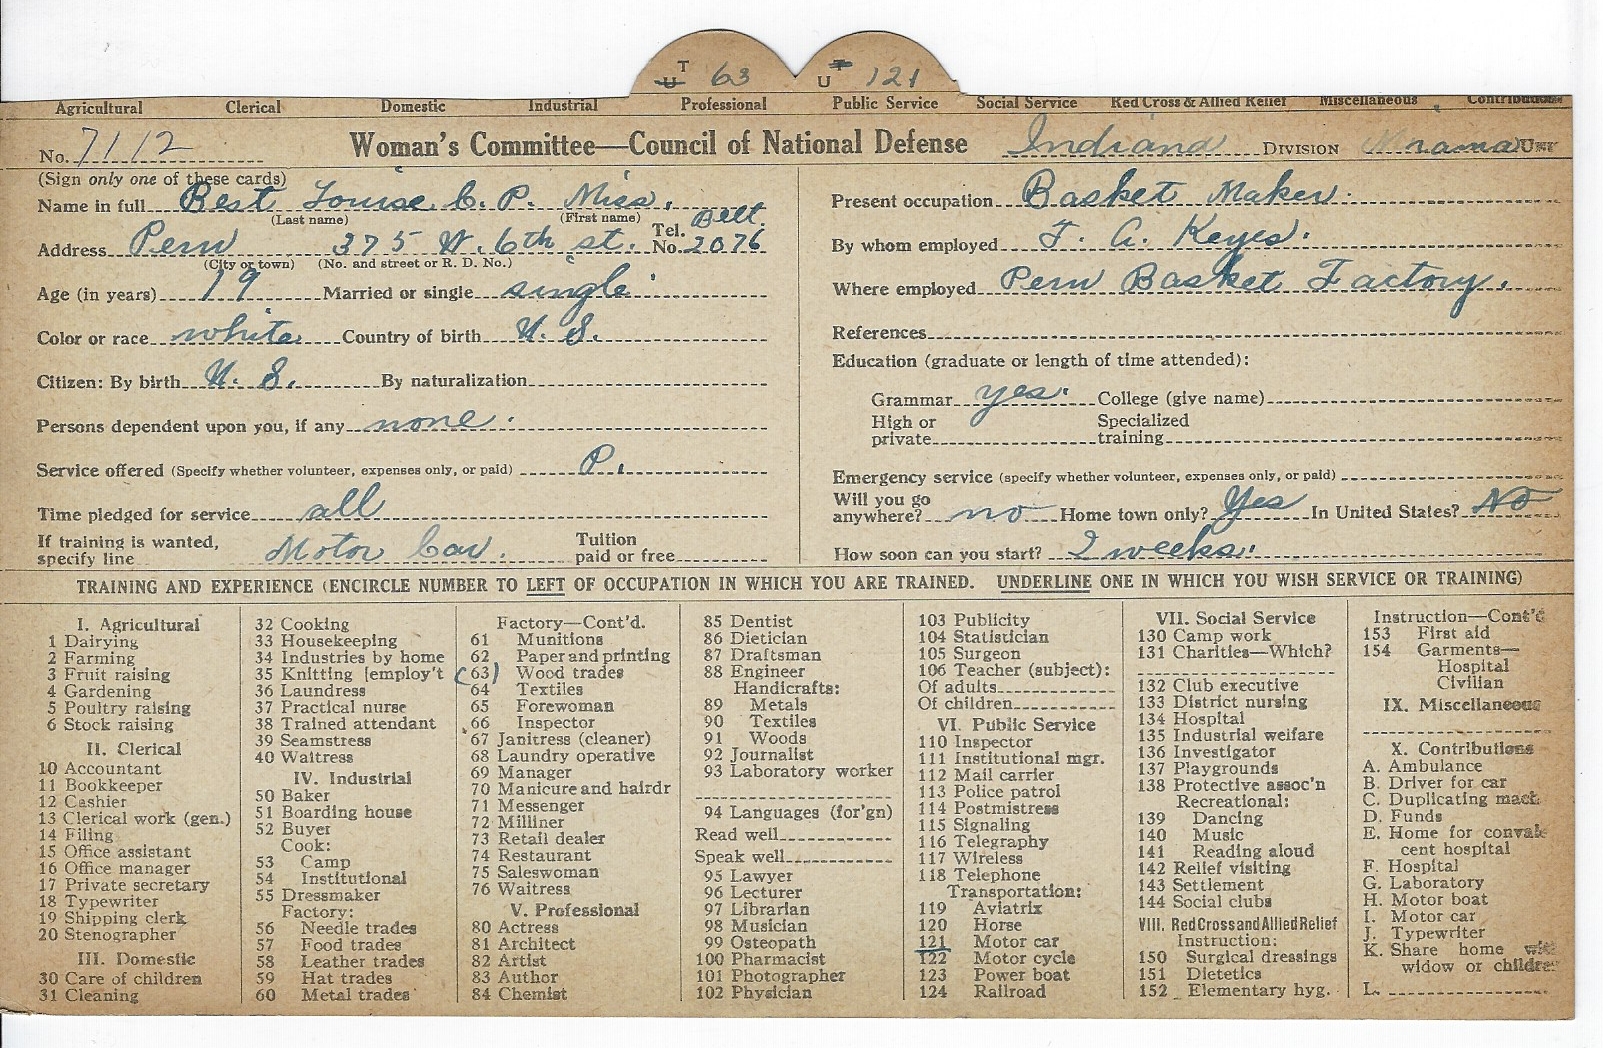 T 63 U 121
Agricultural Clerical Domestic Industrial Professional Public Service Social Service Red Cross & Allied Relief Miscellaneous Contributions
No. 7112 Woman's Committee—Council of National Defense Indiana DIVISION UNIT
(Sign only one of these cards)
Name in full Best Louise C. P. Miss.
(Last name) (First name)
Address Peru 375 W. 6th st. Tel. No. Bell. 2076
(City or town) (No. and street or R. D. No.)
Age (in years) 19 Married or single single
Color or race white Country of birth U. S.
Citizen: By birth U. S. By naturalization
Persons dependent upon you, if any none.
Service offered (Specify whether volunteer, expenses only, or paid) P.
Time pledged for service all
If training is wanted, specify line Motor Car. Tuition paid or free
Present occupation Basket Maker.
By whom employed F. A. Keyes.
Where employed Peru Basket Factory.
References
Education (graduate or length of time attended):
Grammar yes. College (give name)
High or private Specialized training
Emergency service (specify whether volunteer, expenses only, or paid)
Will you go anywhere? no Home town only? Yes In United States? No
How soon can you start? 2 weeks.
TRAINING AND EXPERIENCE (ENCIRCLE NUMBER TO LEFT OF OCCUPATION IN WHICH YOU ARE TRAINED. UNDERLINE ONE IN WHICH YOU WISH SERVICE OR TRAINING)
I. Agricultural
1 Dairying
2 Farming
3 Fruit raising
4 Gardening
5 Poultry raising
6 Stock raising
II. Clerical
10 Accountant
11 Bookkeeper
12 Cashier
13 Clerical work (gen.)
14 Filing
15 Office assistant
16 Office manager
17 Private secretary
18 Typewriter
19 Shipping clerk
20 Stenographer
III. Domestic
30 Care of children
31 Cleaning
32 Cooking
33 Housekeeping
34 Industries by home
35 Knitting [employ't
36 Laundress
37 Practical nurse
38 Trained attendant
39 Seamstress
40 Waitress
IV. Industrial
50 Baker
51 Boarding house
52 Buyer
Cook:
53 Camp
54 Institutional
55 Dressmaker
Factory:
56 Needle trades
57 Food trades
58 Leather trades
59 Hat trades
60 Metal trades
Factory—Cont'd.
61 Munitions
62 Paper and printing
(63) Wood trades
64 Textiles
65 Forewoman
66 Inspector
67 Janitress (cleaner)
68 Laundry operative
69 Manager
70 Manicure and hairdr
71 Messenger
72 Milliner
73 Retail dealer
74 Restaurant
75 Saleswoman
76 Waitress
V. Professional
80 Actress
81 Architect
82 Artist
83 Author
84 Chemist
85 Dentist
86 Dietician
87 Draftsman
88 Engineer
Handicrafts:
89 Metals
90 Textiles
91 Woods
92 Journalist
93 Laboratory worker
94 Languages (for'gn)
Read well
Speak well
95 Lawyer
96 Lecturer
97 Librarian
98 Musician
99 Osteopath
100 Pharmacist
101 Photographer
102 Physician
103 Publicity
104 Statistician
105 Surgeon
106 Teacher (subject):
Of adults
Of children
VI. Public Service
110 Inspector
111 Institutional mgr.
112 Mail carrier
113 Police patrol
114 Postmistress
115 Signaling
116 Telegraphy
117 Wireless
118 Telephone
Transportation:
119 Aviatrix
120 Horse
121 Motor car
122 Motor cycle
123 Power boat
124 Railroad
VII. Social Service
130 Camp work
131 Charities—Which?
132 Club executive
133 District nursing
134 Hospital
135 Industrial welfare
136 Investigator
137 Playgrounds
138 Protective assoc'n
Recreational:
139 Dancing
140 Music
141 Reading aloud
142 Relief visiting
143 Settlement
144 Social clubs
VIII. Red Cross and Allied Relief
Instruction:
150 Surgical dressings
151 Dietetics
152 Elementary hyg.
Instruction—Cont'd
153 First aid
154 Garments—
Hospital
Civilian
IX. Miscellaneous
X. Contributions
A. Ambulance
B. Driver for car
C. Duplicating mach.
D. Funds
E. Home for convalescent hospital
F. Hospital
G. Laboratory
H. Motor boat
I. Motor car
J. Typewriter
K. Share home with
widow or children
L.